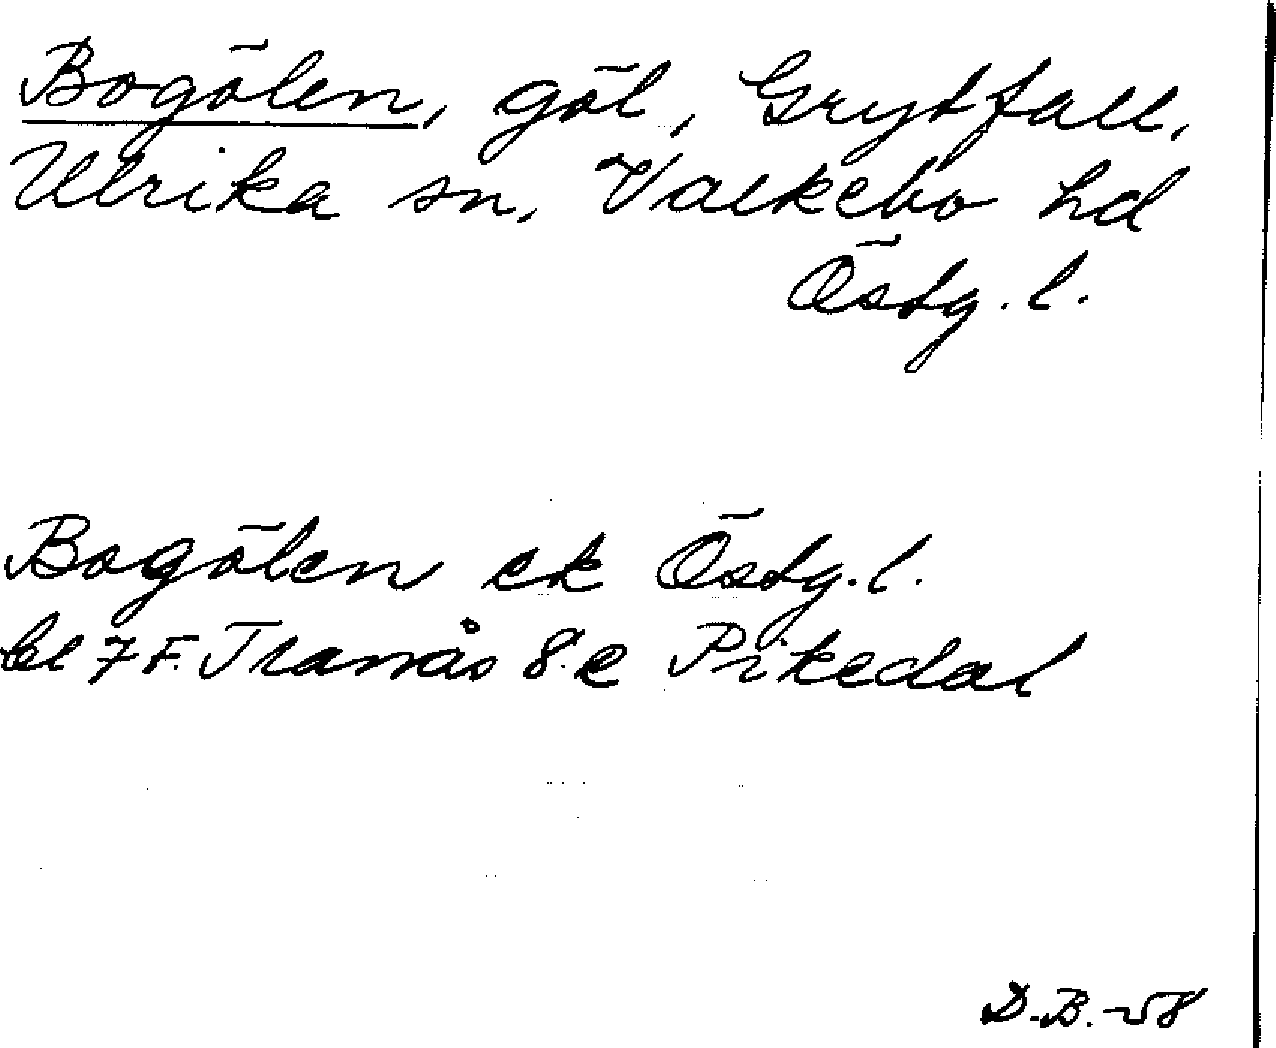 Bogölen, göl, Grytfall,
Ulrika sn, Valkebo hd
Östg. l.
Bogölen ek Östg. l.
bl 7 F. Tranås 8. e Pikedal
D.B. -58